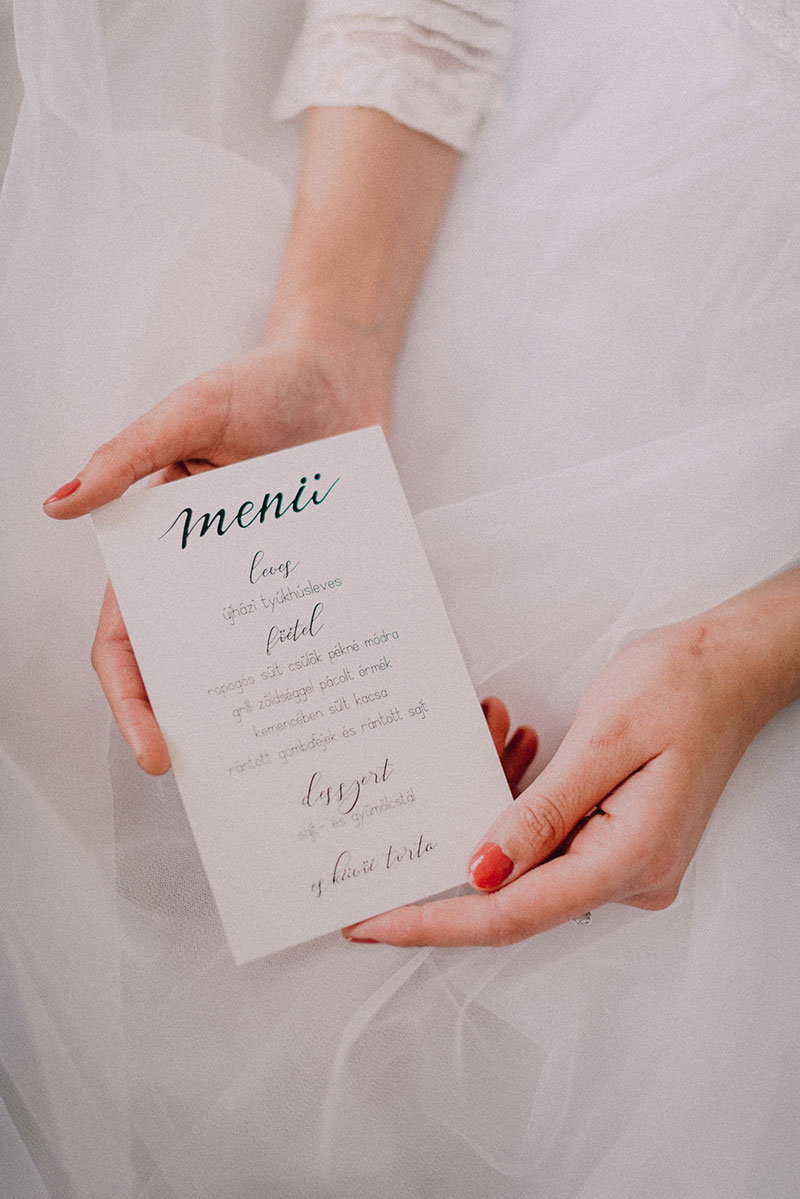 menü
leves
újházi tyúkhúsleves
főétel
ropogós sült csülök pékné módra
grill zöldséggel pácolt érmék
kemencében sült kacsa
rántott gombafejek és rántott sajt
desszert
sajt- és gyümölcstál
esküvői torta